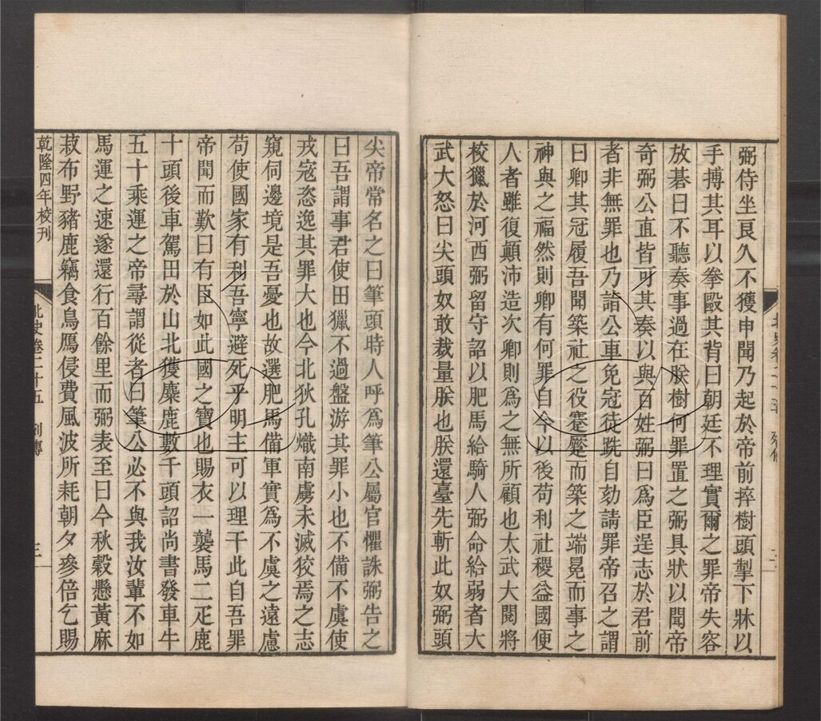 弼侍坐良久不獲申聞乃起於帝前捽樹頭掣下牀以
手搏其耳以拳毆其背曰朝廷不理實爾之罪帝失容
放棊曰不聽奏事過在朕樹何罪置之弼具狀以聞帝
奇弼公直皆可其奏以與百姓弼曰爲臣逞志於君前
者非無罪也乃詣公車免冠徒跣自劾請罪帝召之謂
曰卿其冠履吾聞築社之役蹇蹷而築之端冕而事之
神與之福然則卿有何罪自今以後苟利社稷益國便
人者雖復顛沛造次卿則爲之無所顧也太武大閱將
校獵於河西弼留守詔以肥馬給騎人弼命給弱者大
武大怒曰尖頭奴敢裁量朕也朕還臺先斬此奴弼頭
尖帝常名之曰筆頭時人呼爲筆公屬官懼誅弼告之
曰吾謂事君使田獵不過盤游其罪小也不備不虞使
戎寇恣逸其罪大也今北狄孔熾南虜未滅狡焉之志
窺伺邊境是吾憂也故選肥馬備軍實爲不虞之遠慮
苟使國家有利吾寧避死乎明主可以理干此自吾罪
帝聞而歎曰有臣如此國之寶也賜衣一襲馬二疋鹿
十頭後車駕田於山北獲麋鹿數千頭詔尚書發車牛
五十乘運之帝尋謂從者曰筆公必不與我汝輩不如
馬運之速遂還行百餘里而弼表至曰今秋穀懸黃麻
菽布野豬鹿竊食鳥鴈侵費風波所耗朝夕參倍乞賜
乾隆四年校刊
北史卷二十五 列傳
三